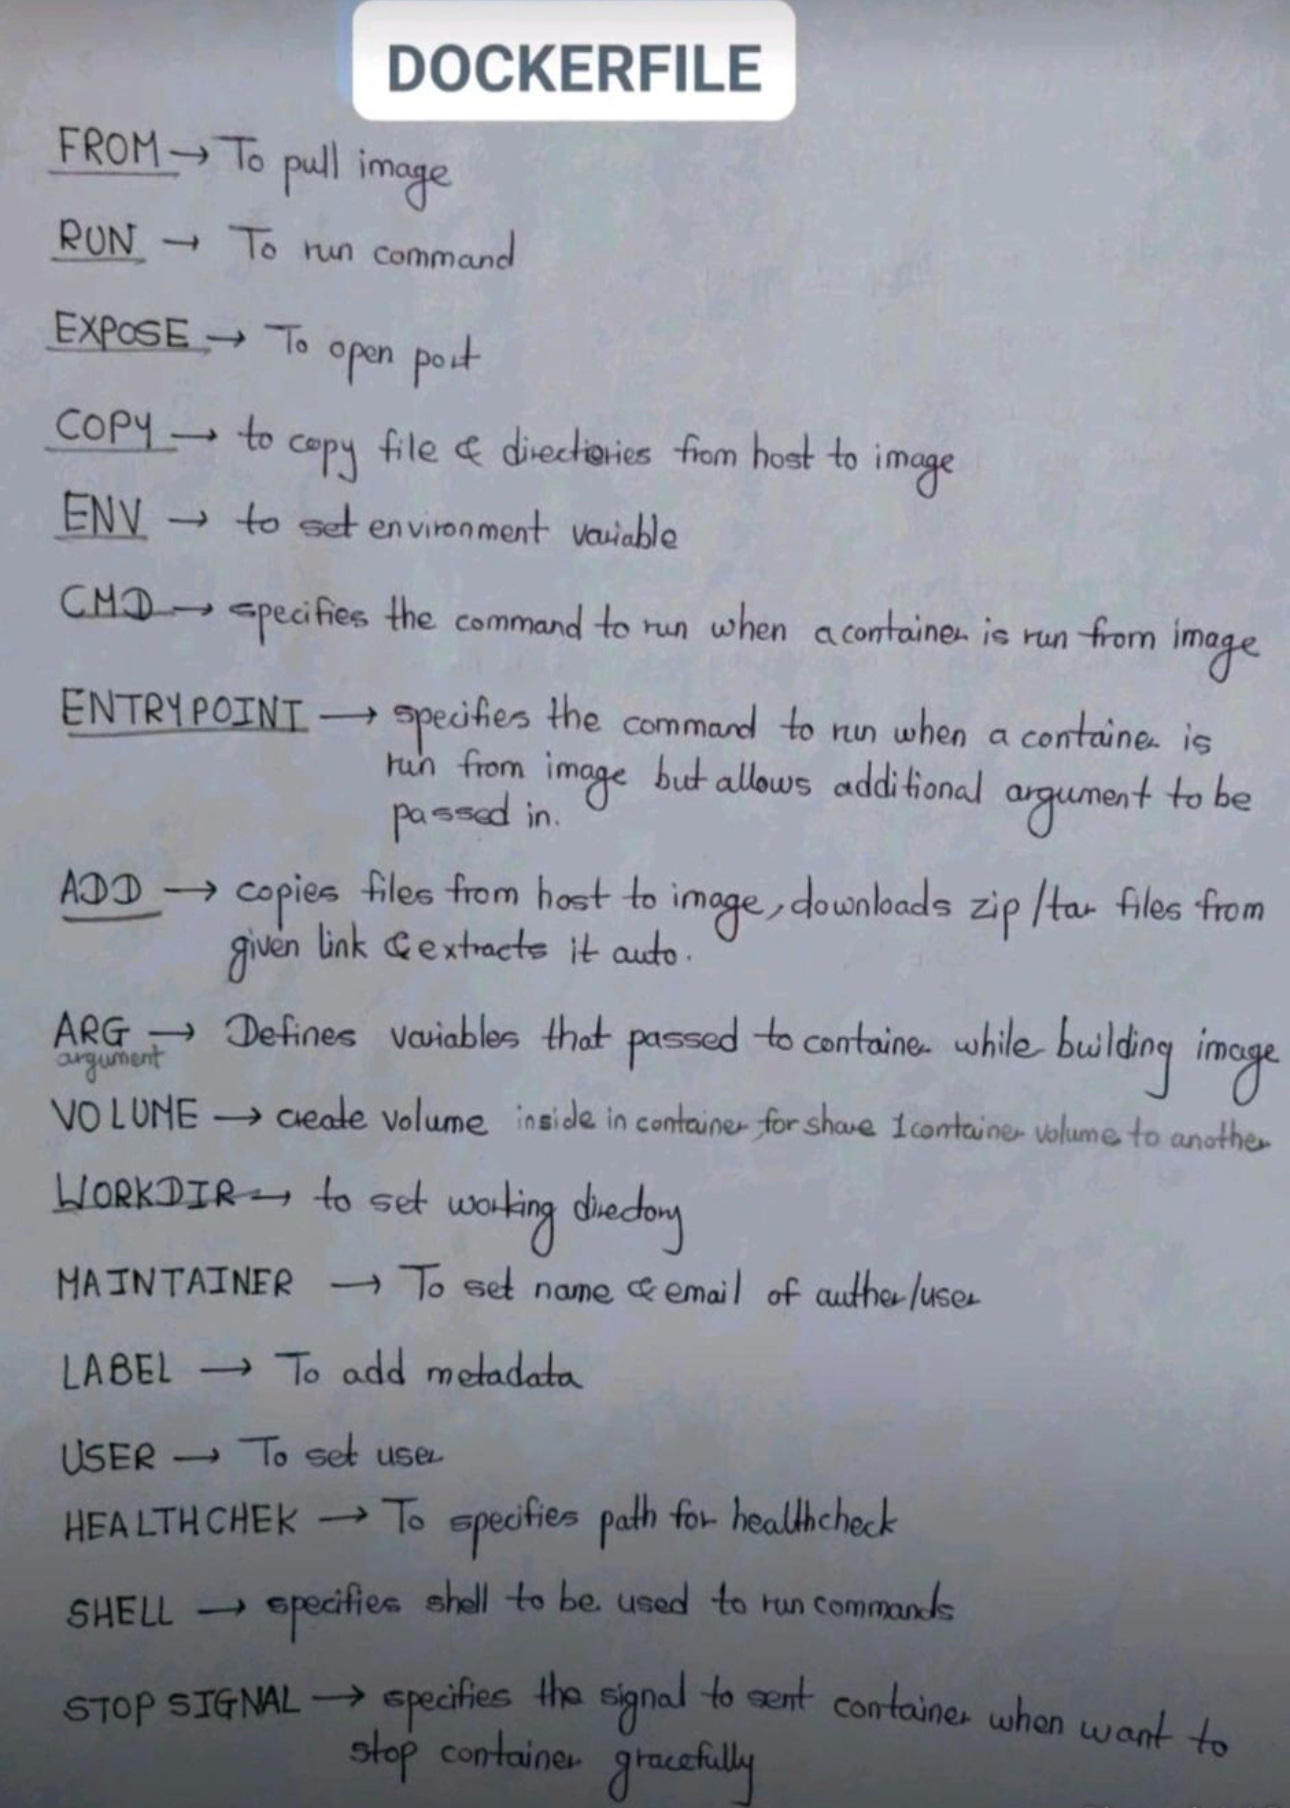 DOCKERFILE
FROM → To pull image
RUN → To run command
EXPOSE → To open port
COPY → to copy file & directiories from host to image
ENV → to set environment variable
CMD → specifies the command to run when a container is run from image
ENTRYPOINT → specifies the command to run when a container is
run from image but allows additional argument to be
passed in.
ADD → copies files from host to image, downloads zip/tar files from
given link & extracts it auto.
ARG → Defines variables that passed to container while building image
argument
VOLUME → create volume inside in container, for share 1 container volume to another
WORKDIR → to set working directory
MAINTAINER → To set name & email of auther/user
LABEL → To add metadata
USER → To set user
HEALTHCHEK → To specifies path for healthcheck
SHELL → specifies shell to be used to run commands
STOP SIGNAL → specifies the signal to sent container when want to
stop container gracefully